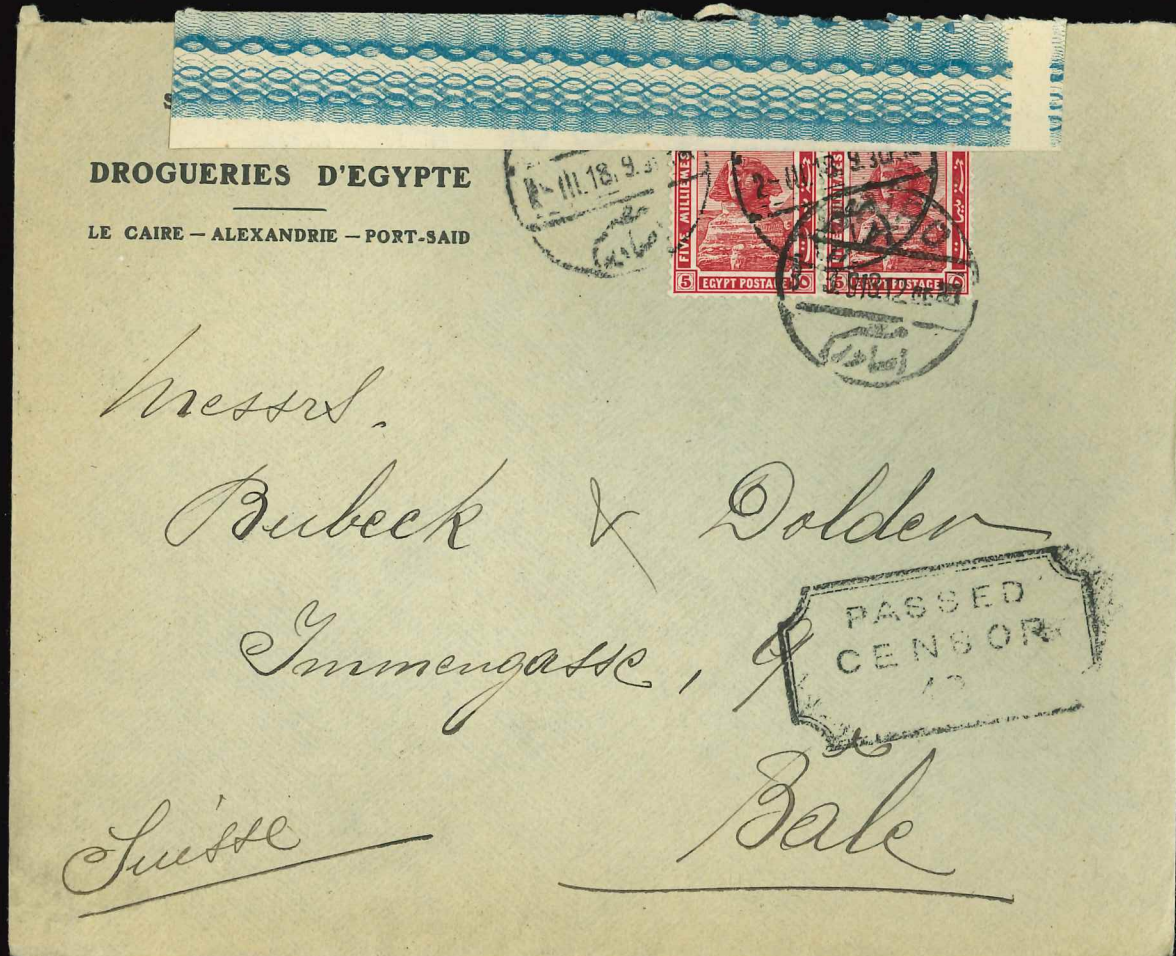 DROGUERIES D'EGYPTE
LE CAIRE — ALEXANDRIE — PORT-SAID
2-III.18.9.30
FIVE MILLIEMES
5
EGYPT POSTAGE
EGYPT POSTAGE
Messrs.
Bubeck & Dolder
Immengasse, 9
Bâle
Suisse
PASSED
CENSOR